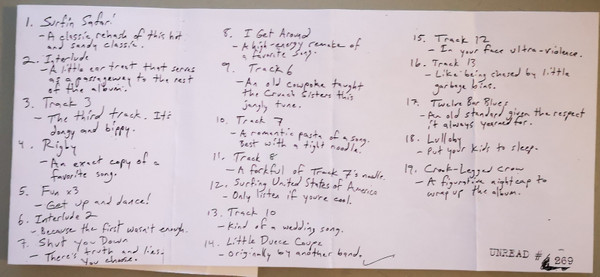 1. Surfin Safari
- A classic rehash of this hit
and sandy classic.
2. Interlude
- A little ear treat that serves
as a passageway to the rest
of the album.
3. Track 3
- The third track. It's
dongy and bippy.
4. Rigby
- An exact copy of a
favorite song.
5. Fun x3
- Get up and dance!
6. Interlude 2
- Because the first wasn't enough.
7. Shut You Down
- There's truth and lies.
You choose.
8. I Get Around
- A high-energy remake of
a favorite song.
9. Track 6
- An old cowpoke taught
the Crunch Sisters this
jangly tune.
10. Track 7
- A romantic pasta of a song.
Best with a tight noodle.
11. Track 8
- A forkful of Track 7's noodle.
12. Surfing United States of America
- Only listen if you're cool.
13. Track 10
- Kind of a wedding song.
14. Little Duece Coupe
- Originally by another band.
15. Track 12
- In your face ultra-violence.
16. Track 13
- Like being chased by little
garbage bins.
17. Twelve Bar Blues
- An old standard given the respect
it always yearned for.
18. Lullaby
- Put your kids to sleep.
19. Crook-Legged Crow
- A figurative nightcap to
wrap up the album.
UNREAD # 269